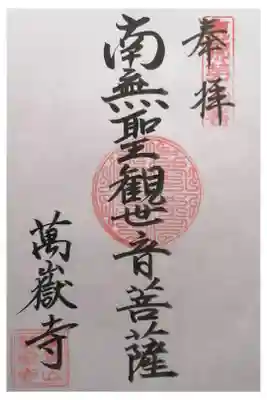 奉拝
南無聖観世音菩薩
萬嶽寺